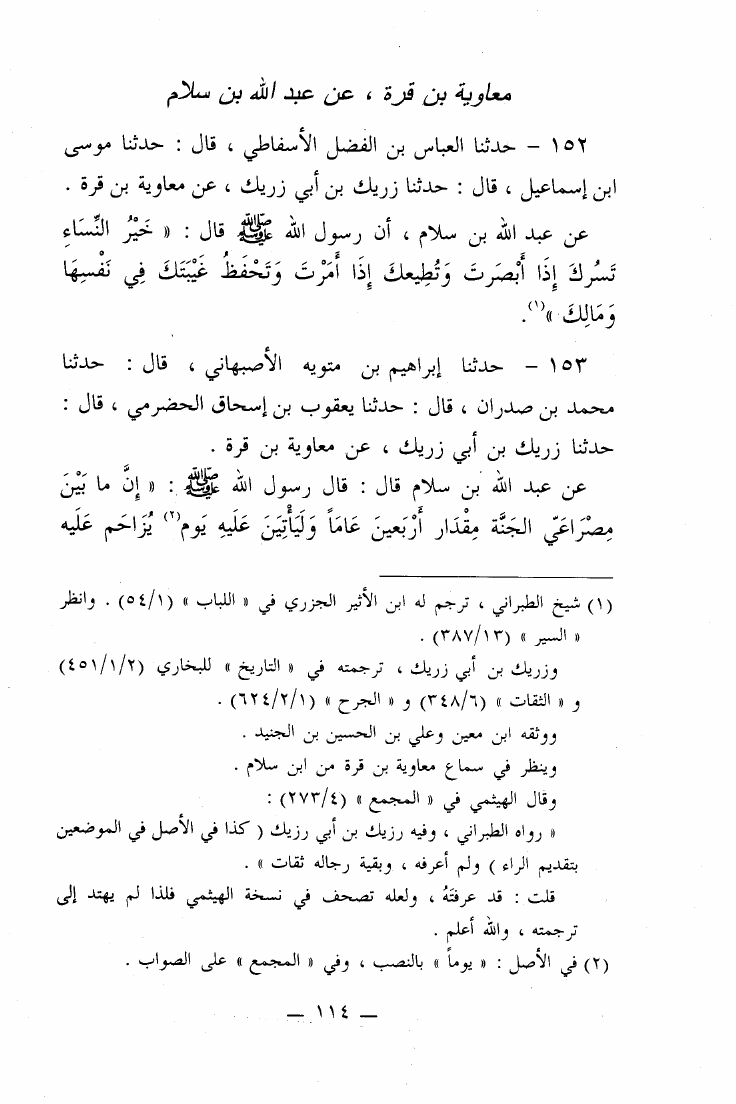 معاوية بن قرة ، عن عبد الله بن سلام
١٥٢ – حدثنا العباس بن الفضل الأسفاطي ، قال : حدثنا موسى
ابن إسماعيل ، قال : حدثنا زريك بن أبي زريك ، عن معاوية بن قرة .
عن عبد الله بن سلام ، أن رسول الله ﷺ قال : « خَيْرُ النِّسَاءِ
تَسُركَ إِذَا أَبْصَرتَ وَتُطِيعكَ إِذَا أَمَرْتَ وَتَحْفَظُ غَيْبَتَكَ فِي نَفْسِهَا
وَمَالِكَ »(١).
١٥٣ – حدثنا إبراهيم بن متويه الأصبهاني ، قال : حدثنا
محمد بن صدران ، قال : حدثنا يعقوب بن إسحاق الحضرمي ، قال :
حدثنا زريك بن أبي زريك ، عن معاوية بن قرة .
عن عبد الله بن سلام قال : قال رسول الله ﷺ : « إِنَّ ما بَيْنَ
مِصْرَاعَيّ الجَنَّة مِقْدَار أَرْبَعينَ عَامَاً وَلَيَأْتِيَنَ عَلَيهِ يَوم(٢) يُزَاحَم عَلَيه
(١) شيخ الطبراني ، ترجم له ابن الأثير الجزري في « اللباب » (٥٤/١) . وانظر
« السير » (٣٨٧/١٣) .
وزريك بن أبي زريك ، ترجمته في « التاريخ » للبخاري (٤٥١/١/٢)
و « الثقات » (٣٤٨/٦) و « الجرح » (٦٢٤/٢/١) .
ووثقه ابن معين وعلي بن الحسين بن الجنيد .
وينظر في سماع معاوية بن قرة من ابن سلام .
وقال الهيثمي في « المجمع » (٢٧٣/٤) :
« رواه الطبراني ، وفيه رزيك بن أبي رزيك ( كذا في الأصل في الموضعين
بتقديم الراء ) ولم أعرفه ، وبقية رجاله ثقات » .
قلت : قد عرفتَهُ ، ولعله تصحف في نسخة الهيثمي فلذا لم يهتد إلى
ترجمته ، والله أعلم .
(٢) في الأصل : « يوماً » بالنصب ، وفي « المجمع » على الصواب .
– ١١٤ –